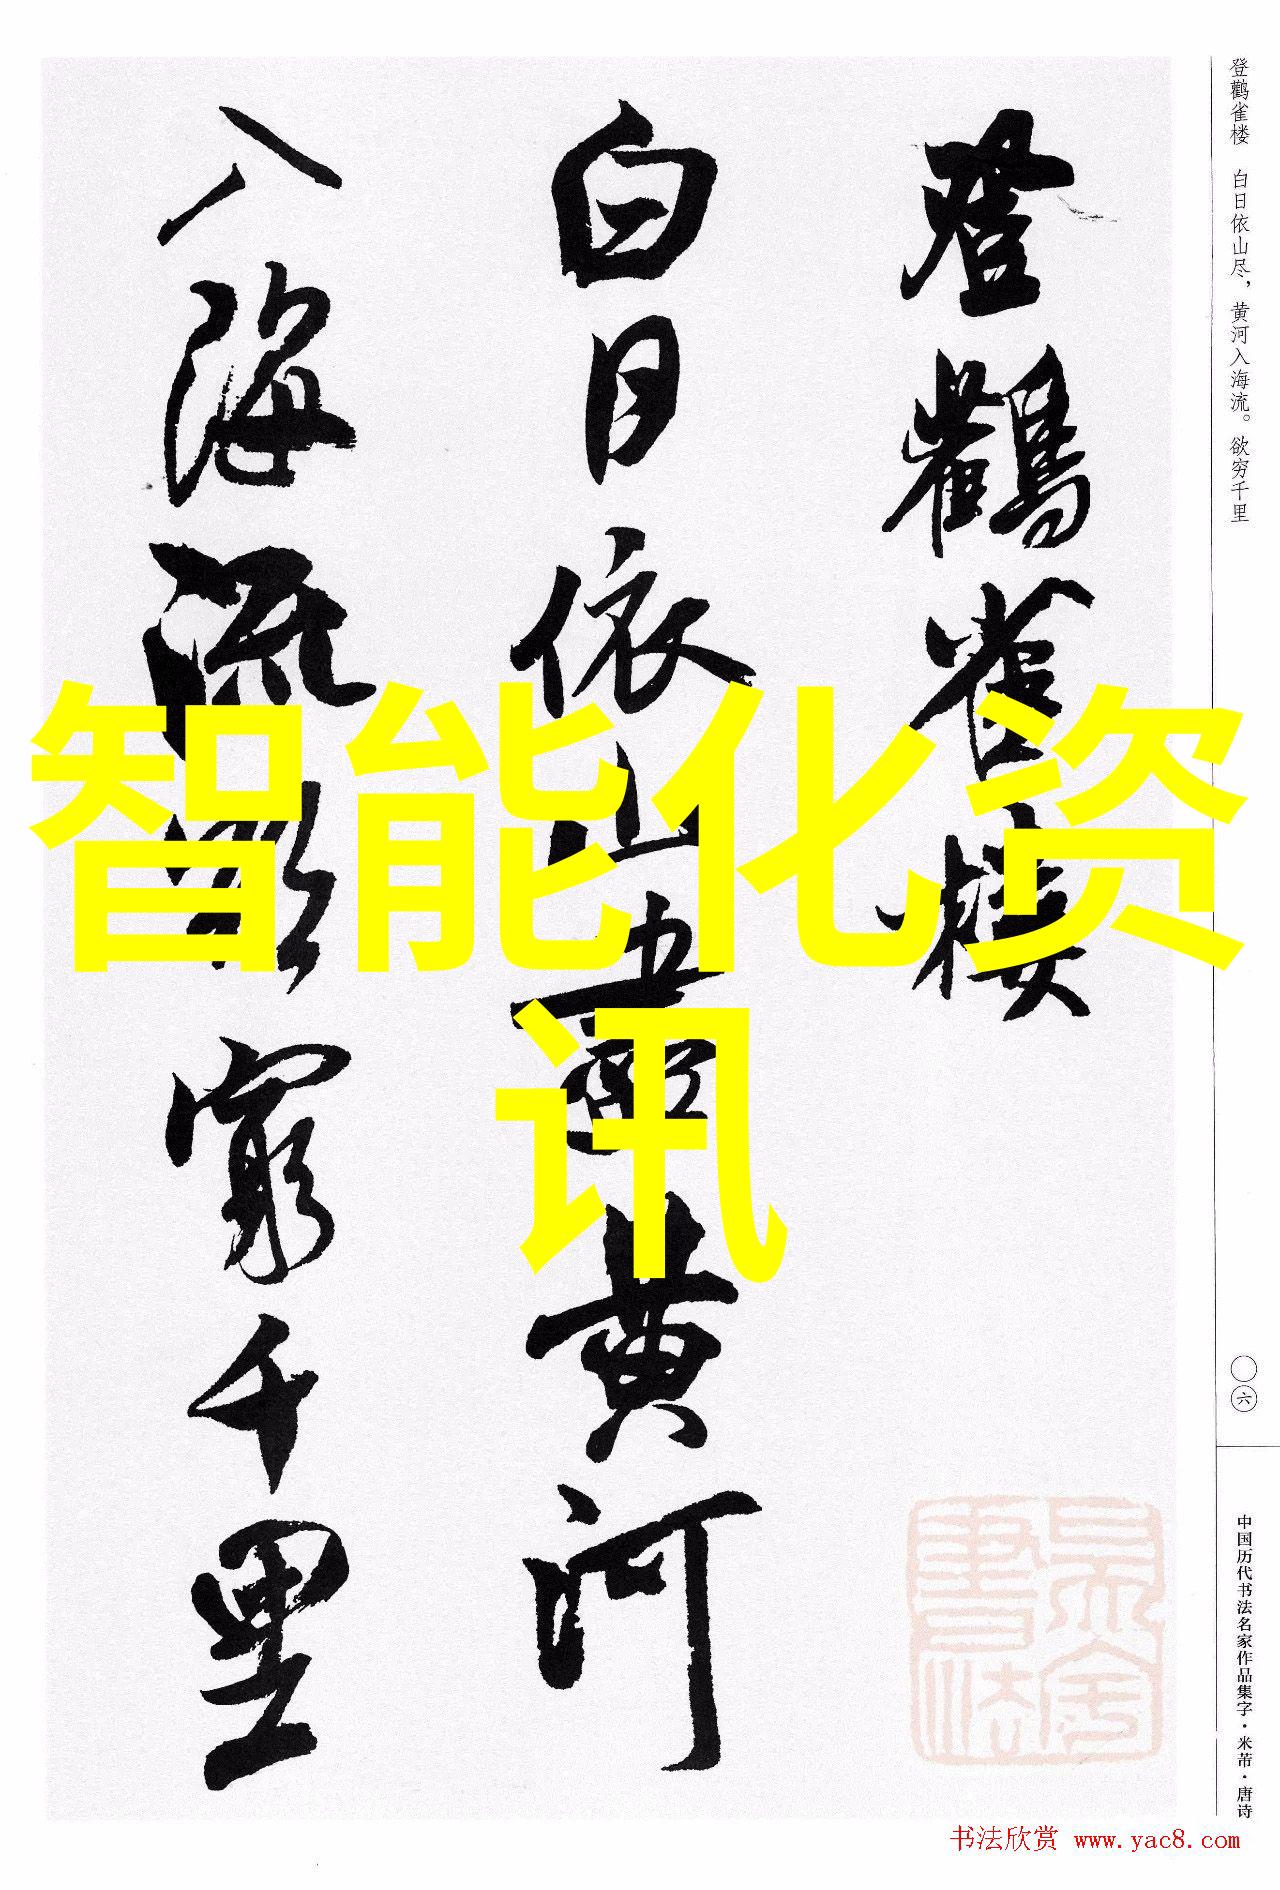 登鸛雀楼
白日依山盡黄河
入海流欲窮千里
智能化资
讯
登鹳雀楼 白日依山尽，黄河入海流。欲穷千里
〇六
中国历代书法名家作品集字·米芾·唐诗
书法欣赏 www.yac8.com